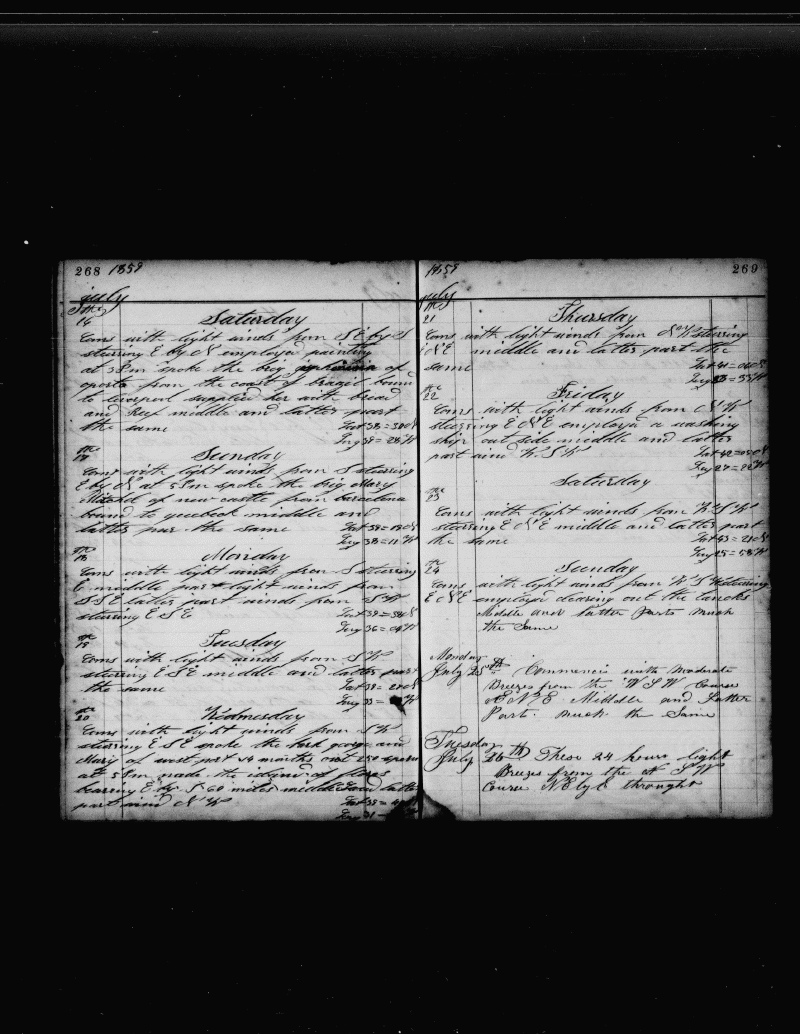 268 1859
july
the
16 Saturday
Coms with light winds from S E by S
steering E by N employed painting
at 3 Pm spoke the brig of
oporto from the coast of brazil bound
to liverpool supplied her with bread
and Beef middle and latter part
the same Lat 38 =
Long 39 = 28 W
the
17 Sunday
Coms with light winds from S steering
E by N at 5 Pm spoke the brig Mary
Mitchel of new castle from barcelona
bound to quebeck middle and
latter par the same Lat 38 =
Long 38 = 11 W
the
18 Monday
Coms with light winds from S steering
E middle part light winds from
S S E latter part winds from S W
steering E S E Lat 39 =
Long 36 = W
the
19 Tuesday
Coms with light winds from S W
steering E S E middle and latter part
the same Lat 39 =
Long
the
20 Wednesday
Coms with light winds from S W
steering E S E spoke the bark george and
Mary of west port 24 months out 250 sperm
at 5 Pm made the island of flores
bearing E by S 60 miles middle and latter
part wind N W Lat 39 =
Long 31
1859 269
july
the
21 Thursday
Coms with light winds from steering
N E middle and latter part the
same Lat 41 = N
Long = 33 W
the
22 Friday
Coms with light winds from N W
steering E N E employed a washing
ship out side middle and latter
part wind W S W Lat 42 = N
Long 27 = 22 W
Saturday
the
23
Coms with light winds from W S W
steering E N E middle and latter part
the same Lat 43 = 21 N
Long 25 = 58 W
the
24 Sunday
Coms with light winds from W S W steering
E N E employed cleaning out the
Middle and Latter Parts much
the Same
Monday
July 25th Commencis with Moderate
Breezes from the W S W Course
E N E Middle and Latter
Part. much the Same
Tuesday
July 26th These 24 hours light
Breezes from the S W
Course throught